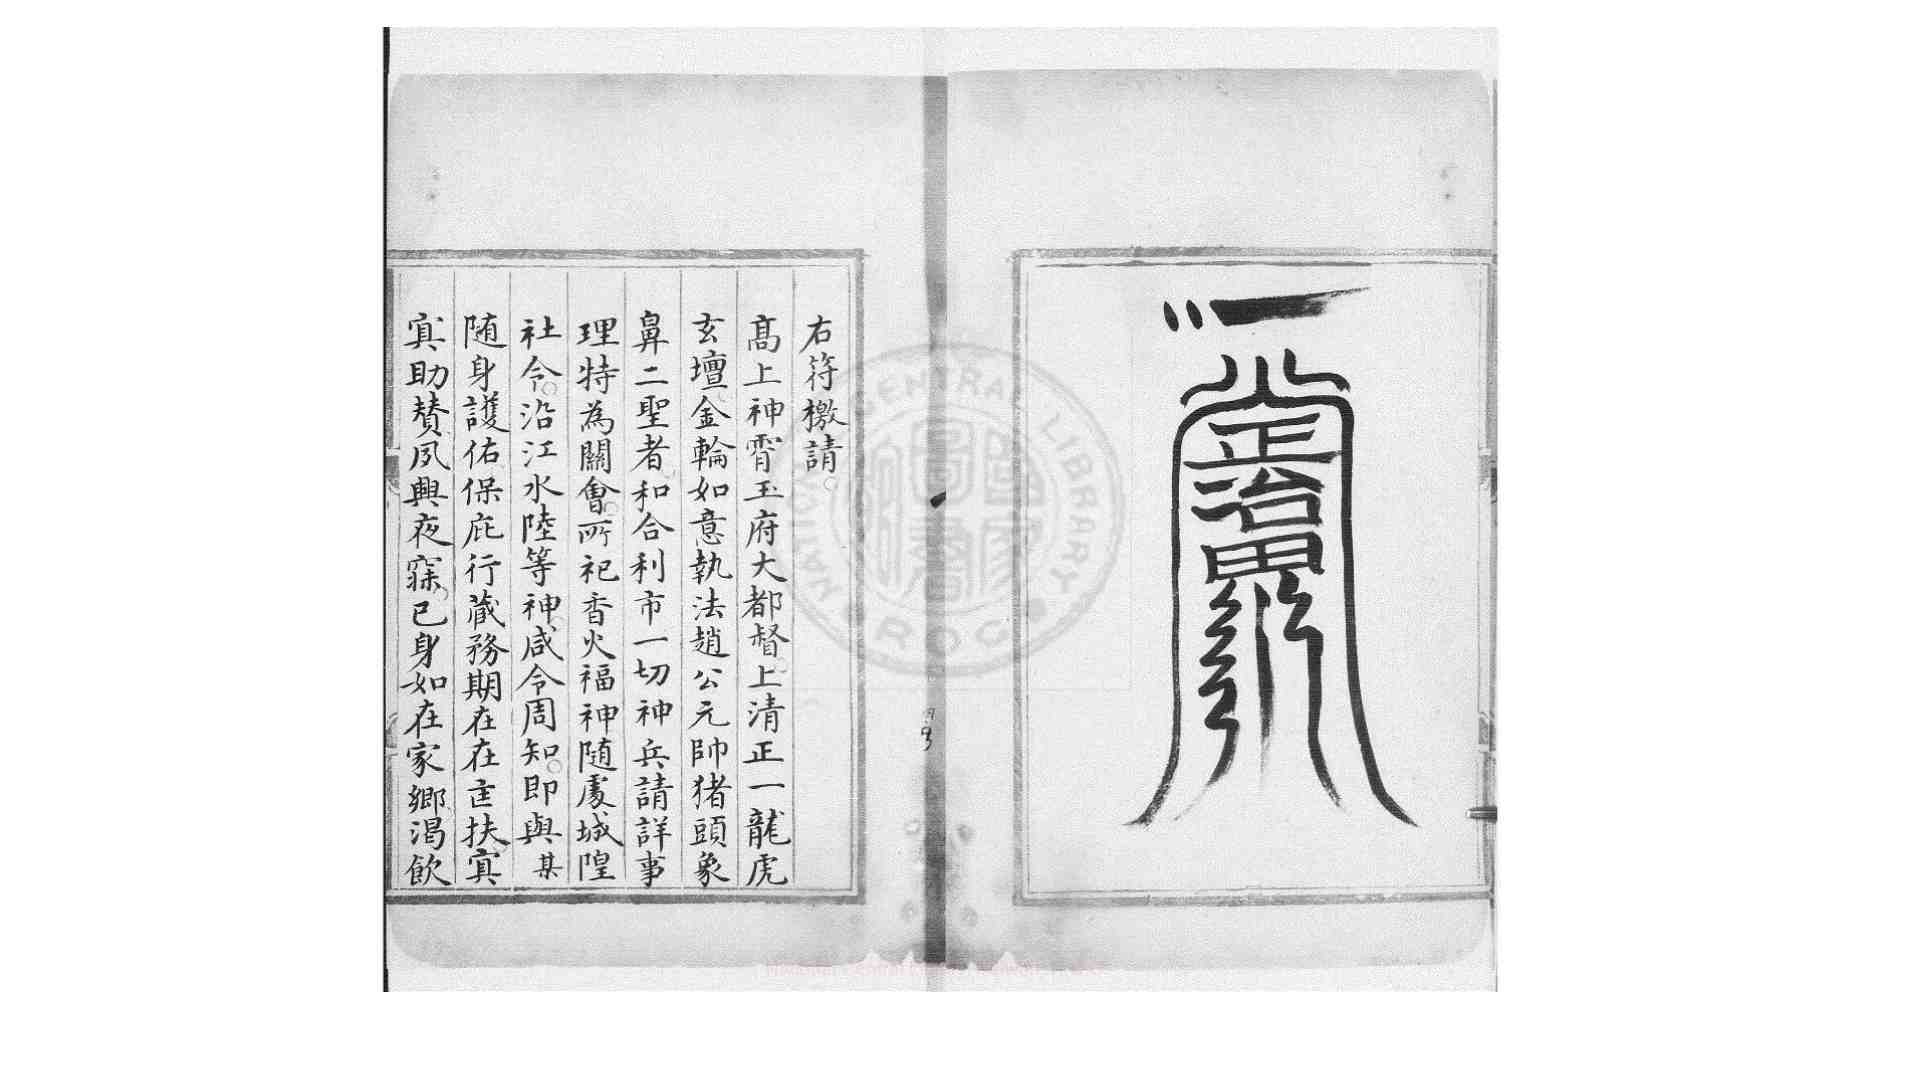 右符檄請。
髙上神霄玉府大都督上清正一龍虎
玄壇金輪如意執法趙公元帥猪頭象
鼻二聖者和合利市一切神兵請詳事
理特為關會。所祀香火福神随處城隍
社令。沿江水陸等神咸令周知。即與某
随身護佑保庇行藏務期在在匡扶㝠
㝠助賛夙興夜寐已身如在家鄉渴飲
CENTRAL LIBRARY